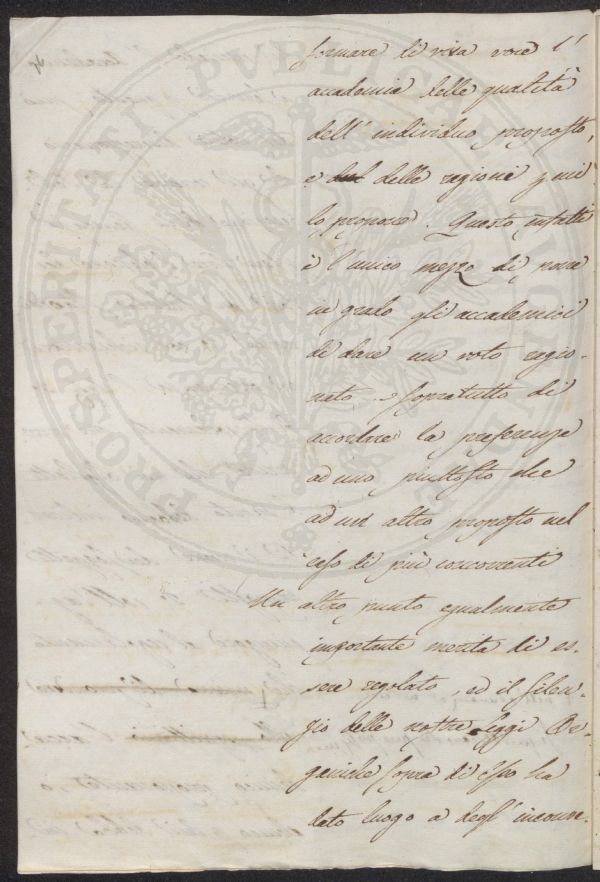 formare di viva voce l'
accademia delle qualità
dell' individuo proposto,
e delle ragioni p cui
lo propone. Questo infatti
è l'unico mezzo di porre
in grado gli accademici
di dare un voto ragio-
nato, e sopratutto di
accordare la preferenza
ad uno piuttosto che
ad un altro proposto nel
caso di più concorrenti
Un altro punto egualmente
importante merita di es-
sere regolato, ed il silen-
zio delle nostre Leggi Or-
ganiche sopra di esso ha
dato luogo a degl' inconve-
PROSPERITATI PVBLICAE AVGENDAE